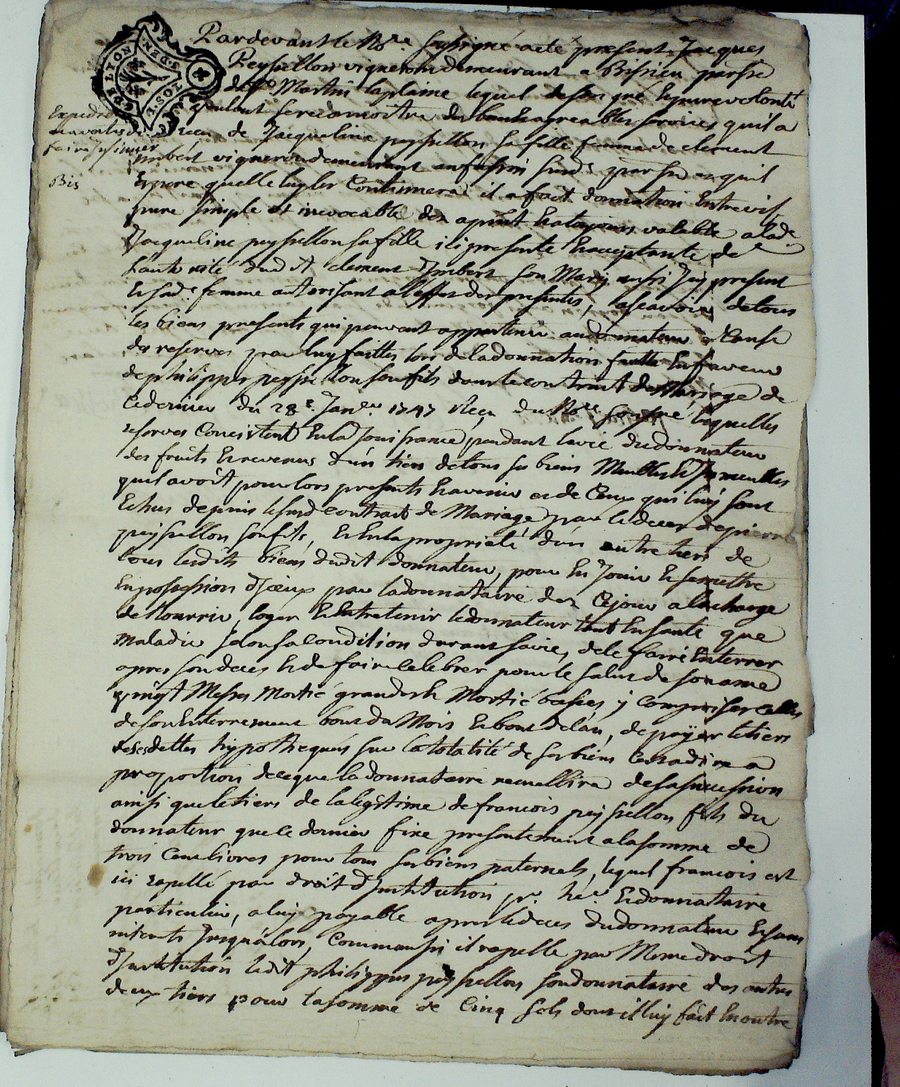 GEN. DE LYON
DEN. 8 SOLS
Pardevant le No.re soussigné acté present Jacques
Peyssellon vigneron demeurant a Bissieu parsse
de St Martin laplaine lequel de son gré et pure volonté
voulant se recconnoitre des bons et agreables services qu'il a
Expedié
receu de Jacqueline peyssellon sa fille femme de clement
faire insinuer
Imbert vigneron demeurant susd. parsse et qu'il
Bis
Espere quelle luy continuera il a fait donnation Entrevifs
pure simple et irrevocable des a present et a toujours valable a lade
Jacqueline peyssellon sa fille ici presente et acceptante de
L'autorité dudit clement Imbert son Mary aussi ici present
et sade femme autorisant a l'effet des presentes, a scavoir de tous
les biens presents qui peuvent appartenir audit donnateur a Cause
des reserves par luy faittes lors de la donnation faitte En faveur
de philippe peyssellon son fils dans le contrat de Mariage de
Ce dernier du 28e Janer 1747 Reçu du No.re soussné lesquelles
reserves Concistent En la Jouissance pendant la vie du donnateur
des fruits et revenus d'un tiers de tous ses biens Meubles et Immeubles
qu'il avoit pour lors presents et avenir et de Ceux qui luy sont
Echus depuis le susd contrat de Mariage par le deces de pierre
peyssellon son fils, et En la proprieté d'un autre tiers de
tous lesdits biens dudit donnateur, pour En Jouir et se mettre
En possession d'iceux par la donnataire des Ce jour a la charge
de Nourrir, loger et Entretenir le donnateur tant En santé que
Maladie selon sa condition durant sa vie, de le faire Enterrer
apres son deces et de faire celebrer pour le salut de son ame
vingt Messes Moitié grandes et Moitié basses y comprises celles
de son Enterrement bout du Mois et bout de l'an, de payer le tiers
de ses dettes hypothequées sur la totalité de ses biens Cest a dire a
proportion de ce que la donnataire recueillira de sa succession
ainsi que le tiers de la legitime de francois peyssellon fils du
donnateur que ce dernier fixe presentement a la somme de
trois Cens livres pour tous ses biens paternels, lequel francois est
ici rapellé par droit d'Institution pr. her. et donnataire
particulier, a luy payable apres le deces du donnateur et sans
interets Jusqu'alors, Comme aussi il rapelle par Meme droit
d'Institution ledit philippe peyssellon son donnataire des autres
deux tiers pour la somme de Cinq sols dont il luy fait En outre